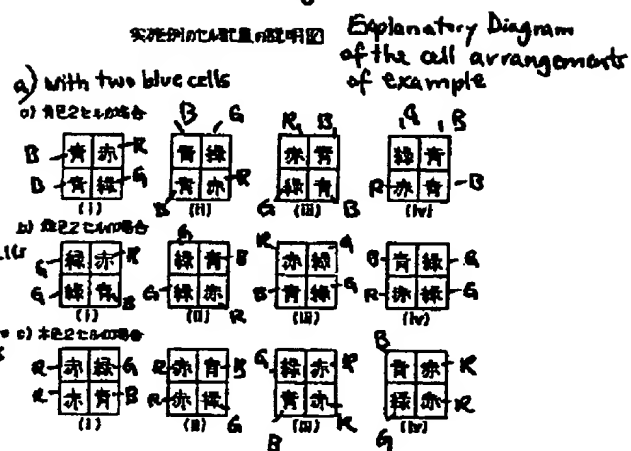 実施例のセル配置の説明図
Explanatory Diagram
of the cell arrangements
of example
a) with two blue cells
a) 青色2セルの場合
B 青 赤 R
B 青 緑 G
(i)
B G
青 緑
青 赤 R
B
(ii)
R B
赤 青
緑 青
G B
(iii)
G B
緑 青
R 赤 青 B
(iv)
b) 緑色2セルの場合
G 緑 赤 R
G 緑 青 B
(i)
G
緑 青 B
G 緑 赤
R
(ii)
R G
赤 緑
B 青 緑 G
(iii)
B 青 緑 G
R 赤 緑 G
(iv)
c) 赤色2セルの場合
R 赤 緑 G
R 赤 青 B
(i)
R 赤 青 B
R 赤 緑
G
(ii)
G 緑 赤 R
青 赤
B R
(iii)
B
青 赤 R
緑 赤 R
G
(iv)